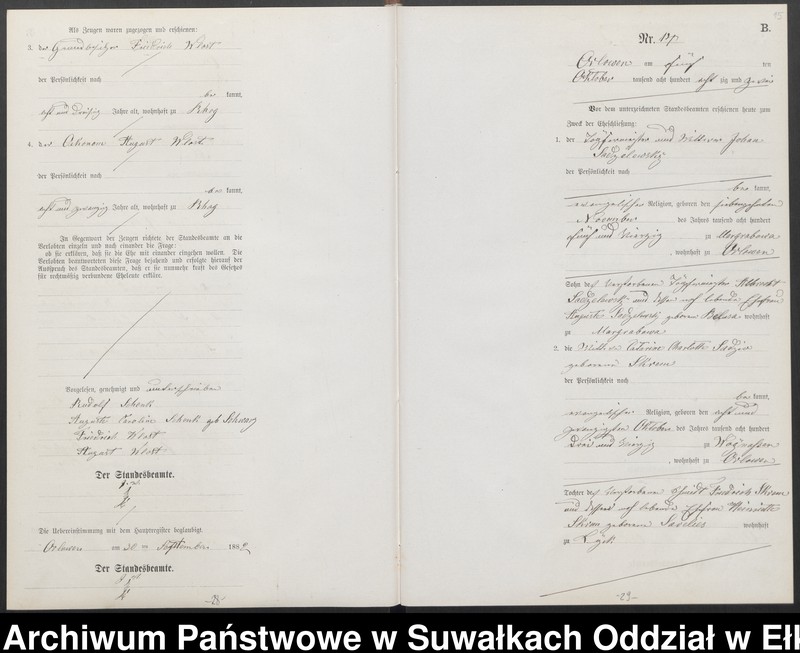 Als Zeugen waren zugezogen und erschienen:
3. der Grundbesitzer Friedrich Klost
der Persönlichkeit nach
be kannt,
acht und dreißig Jahre alt, wohnhaft zu
4. der August Klost
der Persönlichkeit nach
kannt,
acht und zwanzig Jahre alt, wohnhaft zu
In Gegenwart der Zeugen richtete der Standesbeamte an die
Verlobten einzeln und nach einander die Frage:
ob sie erklären, daß sie die Ehe mit einander eingehen wollen. Die
Verlobten beantworteten diese Frage bejahend und erfolgte hierauf der
Ausspruch des Standesbeamten, daß er sie nunmehr kraft des Gesetzes
für rechtmäßig verbundene Eheleute erkläre.
Vorgelesen, genehmigt und unterschrieben
Rudolf Schenk
Auguste Caroline Schenk geb. Schwarz
Friedrich Klost
August Klost
Der Standesbeamte.
Die Uebereinstimmung mit dem Hauptregister beglaubigt.
Orlowen am 30 ten September 188
Der Standesbeamte.
-28-
B.
Nr.
Orlowen am fünf ten
Oktober tausend acht hundert acht zig und zwei
Vor dem unterzeichneten Standesbeamten erschienen heute zum
Zweck der Eheschließung:
1. der Töpfermeister und Wittwer Johann
der Persönlichkeit nach
be kannt,
evangelischer Religion, geboren den siebenzehnten
November des Jahres tausend acht hundert
fünf und vierzig zu Margrabowa
, wohnhaft zu Orlowen
Sohn des verstorbenen Töpfermeister
und dessen noch lebende Ehefrau
Auguste geborene wohnhaft
zu Margrabowa
2. die Wittwe Catarine Charlotte
geborene
der Persönlichkeit nach
be kannt,
evangelischer Religion, geboren den acht und
zwanzigsten Oktober des Jahres tausend acht hundert
drei und vierzig zu
, wohnhaft zu Orlowen
Tochter des verstorbenen Schmidt Friedrich
und dessen noch lebende Ehefrau Henriette
geborene wohnhaft
zu Lyck
-29-
Archiwum Państwowe w Suwałkach Oddział w Ełk